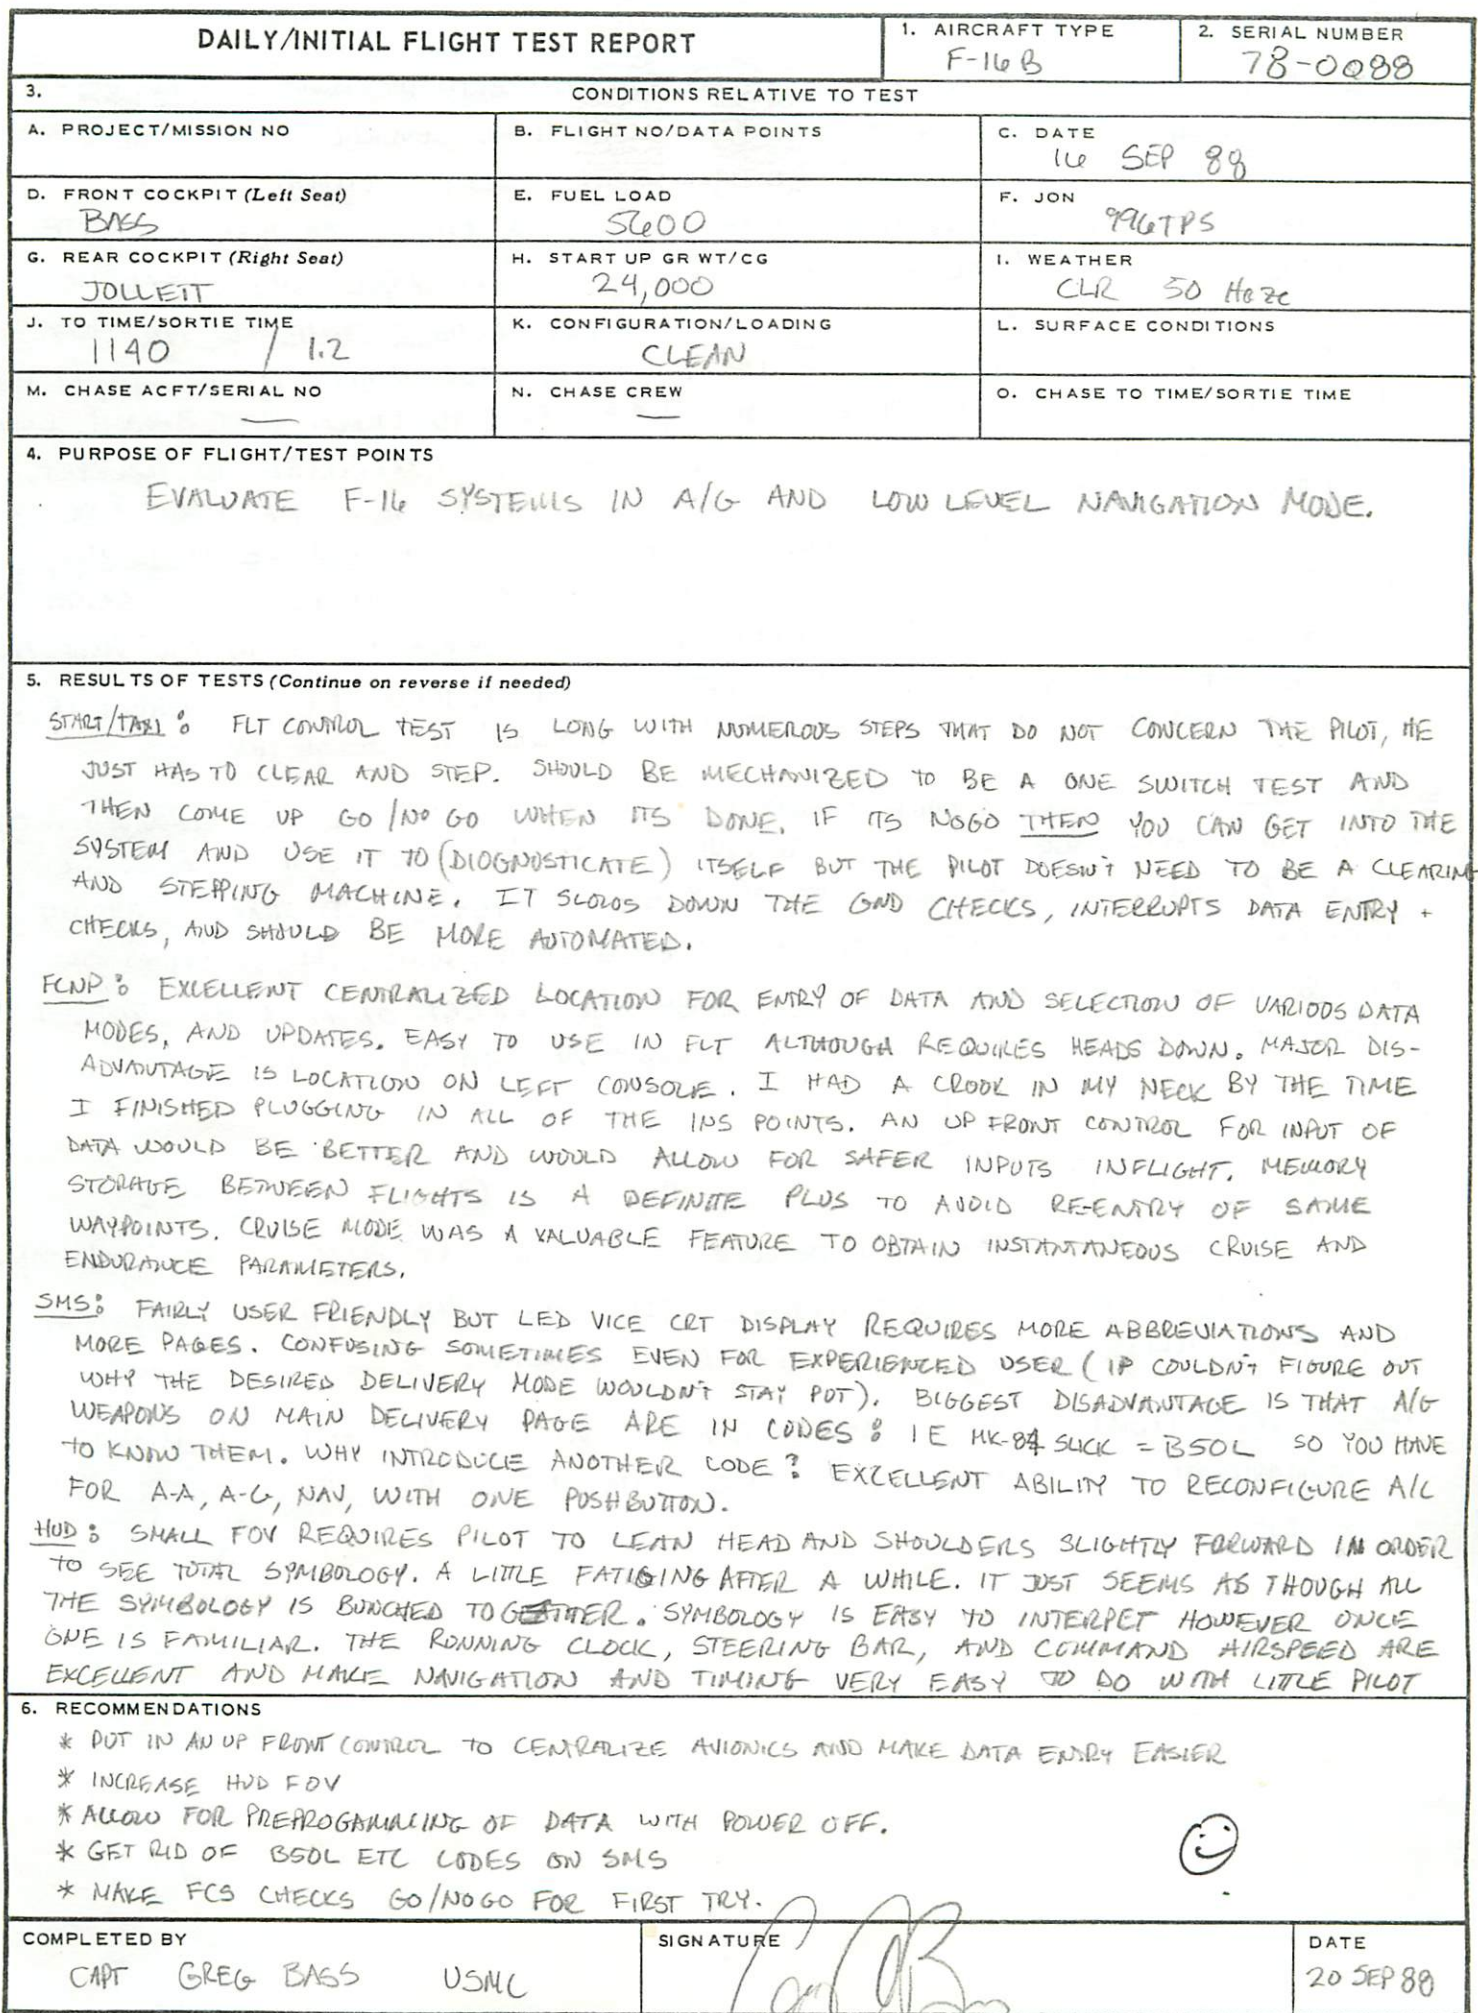 DAILY/INITIAL FLIGHT TEST REPORT
1. AIRCRAFT TYPE
F-16B
2. SERIAL NUMBER
78-0088
3. CONDITIONS RELATIVE TO TEST
A. PROJECT/MISSION NO
B. FLIGHT NO/DATA POINTS
C. DATE
16 SEP 88
D. FRONT COCKPIT (Left Seat)
BASS
E. FUEL LOAD
5600
F. JON
996TPS
G. REAR COCKPIT (Right Seat)
JOLLETT
H. START UP GR WT/CG
24,000
I. WEATHER
CLR 50 Haze
J. TO TIME/SORTIE TIME
1140 / 1.2
K. CONFIGURATION/LOADING
CLEAN
L. SURFACE CONDITIONS
M. CHASE ACFT/SERIAL NO
—
N. CHASE CREW
—
O. CHASE TO TIME/SORTIE TIME
4. PURPOSE OF FLIGHT/TEST POINTS
EVALUATE F-16 SYSTEMS IN A/G AND LOW LEVEL NAVIGATION MODE.
5. RESULTS OF TESTS (Continue on reverse if needed)
START/TAXI: FLT CONTROL TEST IS LONG WITH NUMEROUS STEPS THAT DO NOT CONCERN THE PILOT, HE
JUST HAS TO CLEAR AND STEP. SHOULD BE MECHANIZED TO BE A ONE SWITCH TEST AND
THEN COME UP GO/NO GO WHEN ITS DONE. IF ITS NOGO THEN YOU CAN GET INTO THE
SYSTEM AND USE IT TO (DIOGNOSTICATE) ITSELF BUT THE PILOT DOESN'T NEED TO BE A CLEARING
AND STEPPING MACHINE. IT SLOWS DOWN THE GND CHECKS, INTERRUPTS DATA ENTRY +
CHECKS, AND SHOULD BE MORE AUTOMATED.
FCNP: EXCELLENT CENTRALIZED LOCATION FOR ENTRY OF DATA AND SELECTION OF VARIOUS DATA
MODES, AND UPDATES. EASY TO USE IN FLT ALTHOUGH REQUIRES HEADS DOWN. MAJOR DIS-
ADVANTAGE IS LOCATION ON LEFT CONSOLE. I HAD A CROOK IN MY NECK BY THE TIME
I FINISHED PLUGGING IN ALL OF THE INS POINTS. AN UP FRONT CONTROL FOR INPUT OF
DATA WOULD BE BETTER AND WOULD ALLOW FOR SAFER INPUTS INFLIGHT. MEMORY
STORAGE BETWEEN FLIGHTS IS A DEFINITE PLUS TO AVOID RE-ENTRY OF SAME
WAYPOINTS. CRUISE MODE WAS A VALUABLE FEATURE TO OBTAIN INSTANTANEOUS CRUISE AND
ENDURANCE PARAMETERS.
SMS: FAIRLY USER FRIENDLY BUT LED VICE CRT DISPLAY REQUIRES MORE ABBREVIATIONS AND
MORE PAGES. CONFUSING SOMETIMES EVEN FOR EXPERIENCED USER (IP COULDN'T FIGURE OUT
WHY THE DESIRED DELIVERY MODE WOULDN'T STAY PUT). BIGGEST DISADVANTAGE IS THAT A/G
WEAPONS ON MAIN DELIVERY PAGE ARE IN CODES: IE MK-84 SLICK = B50L SO YOU HAVE
TO KNOW THEM. WHY INTRODUCE ANOTHER CODE? EXCELLENT ABILITY TO RECONFIGURE A/C
FOR A-A, A-G, NAV, WITH ONE PUSHBUTTON.
HUD: SMALL FOV REQUIRES PILOT TO LEAN HEAD AND SHOULDERS SLIGHTLY FORWARD IN ORDER
TO SEE TOTAL SYMBOLOGY. A LITTLE FATIGING AFTER A WHILE. IT JUST SEEMS AS THOUGH ALL
THE SYMBOLOGY IS BUNCHED TOGETHER. SYMBOLOGY IS EASY TO INTERPET HOWEVER ONCE
ONE IS FAMILIAR. THE RUNNING CLOCK, STEERING BAR, AND COMMAND AIRSPEED ARE
EXCELLENT AND MAKE NAVIGATION AND TIMING VERY EASY TO DO WITH LITTLE PILOT
6. RECOMMENDATIONS
* PUT IN AN UP FRONT CONTROL TO CENTRALIZE AVIONICS AND MAKE DATA ENTRY EASIER
* INCREASE HUD FOV
* ALLOW FOR PREPROGAMMING OF DATA WITH POWER OFF.
* GET RID OF B50L ETC CODES ON SMS
* MAKE FCS CHECKS GO/NOGO FOR FIRST TRY.
COMPLETED BY
CAPT GREG BASS USMC
SIGNATURE
DATE
20 SEP 88